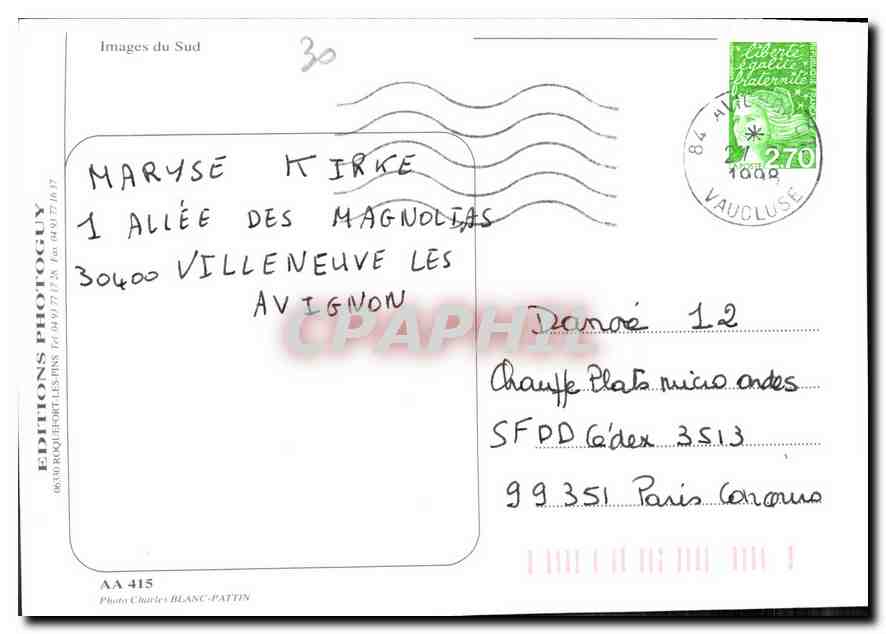 Images du Sud
30
liberté
égalité
fraternité
2,70
84
27
1998
VAUCLUSE
MARYSE KIRKE
1 ALLÉE DES MAGNOLIAS
30400 VILLENEUVE LES
AVIGNON
CPAPHIL
Danoé 12
Chauffe Plats micro ondes
SFDD Cédex 3513
99351 Paris Concours
EDITIONS PHOTOGUY
06330 ROQUEFORT-LES-PINS Tél 04 93 77 17 28 Fax 04 93 77 16 37
AA 415
Photo Charles BLANC-PATTIN